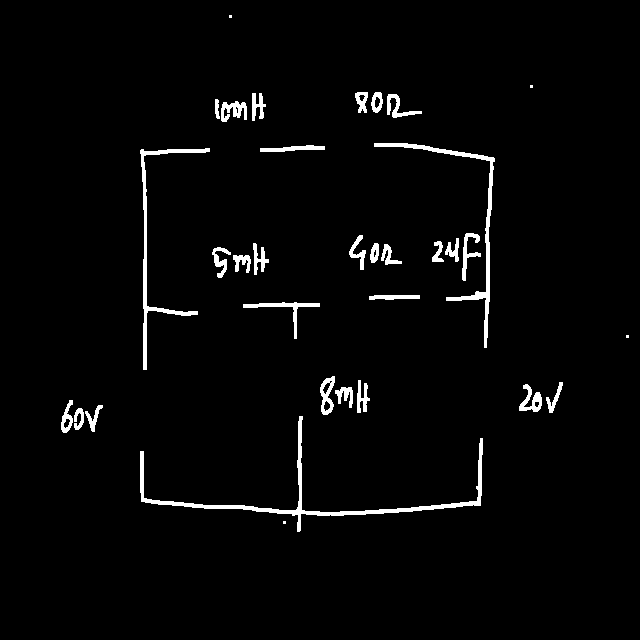 10mH 80Ω
5mH 40Ω 2μF
60V 8mH 20V